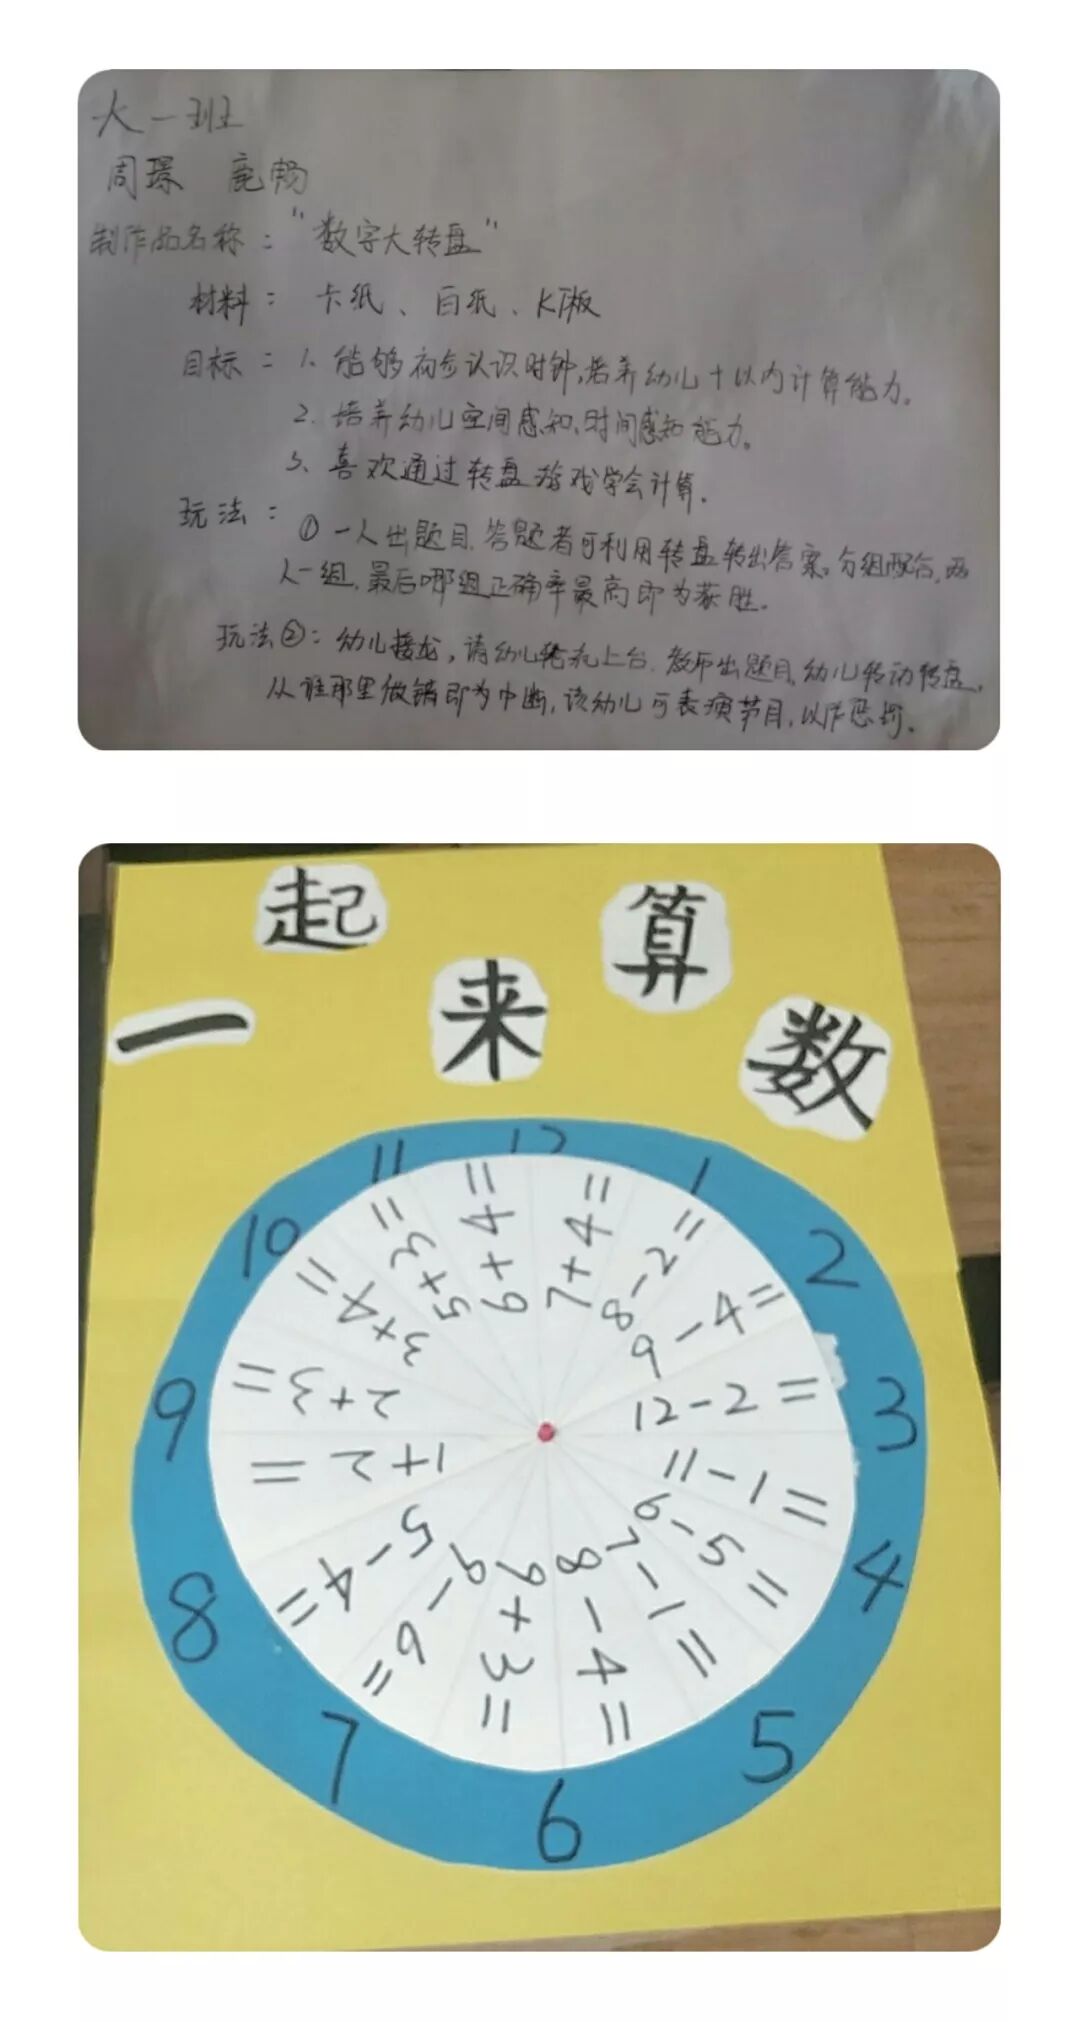 大一班
周璟 鹿畅
制作品名称："数字大转盘"
材料：卡纸、白纸、KT板
目标：1、能够初步认识时钟，培养幼儿十以内计算能力。
2、培养幼儿空间感知、时间感知能力。
3、喜欢通过转盘游戏学会计算。
玩法：①一人出题目，答题者可利用转盘转出答案。分组配合，两
人一组，最后哪组正确率最高即为获胜。
玩法②：幼儿接龙，请幼儿轮流上台，教师出题目，幼儿转动转盘，
从谁那里做错即为中断，该幼儿可表演节目，以作惩罚。
一起来算数
12
1
2
3
4
5
6
7
8
9
10
11
7+4=
8-2=
9-4=
12-2=
11-1=
9-5=
7-1=
8-4=
9+3=
9-6=
5-4=
1+2=
2+3=
3+4=
5+3=
6+4=